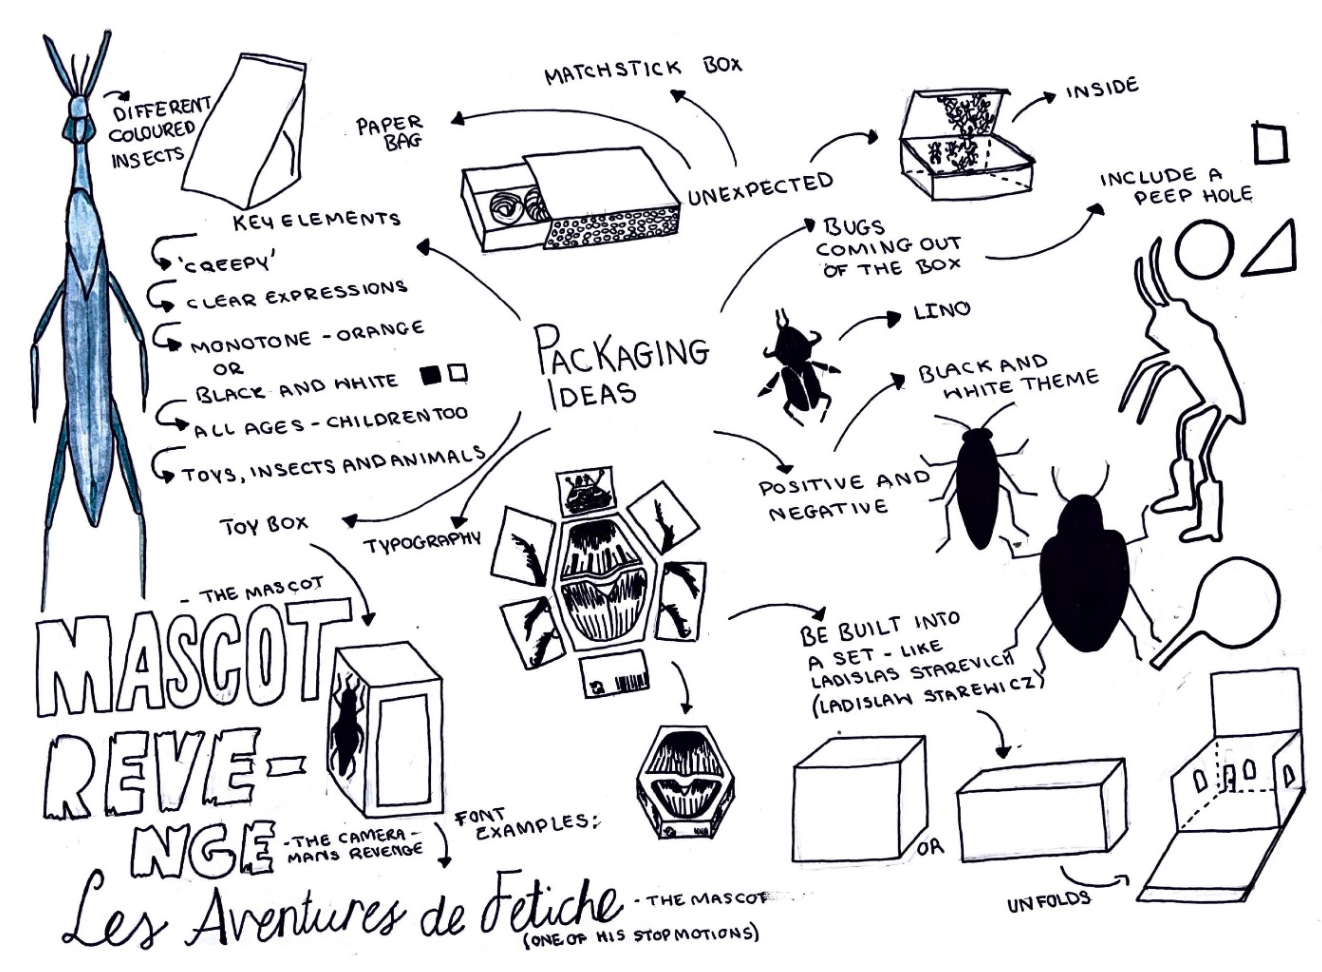 MATCHSTICK BOX
INSIDE
DIFFERENT
COLOURED
INSECTS
PAPER
BAG
UNEXPECTED
INCLUDE A
PEEP HOLE
KEY ELEMENTS
'CREEPY'
CLEAR EXPRESSIONS
MONOTONE - ORANGE
OR
BLACK AND WHITE
ALL AGES - CHILDREN TOO
TOYS, INSECTS AND ANIMALS
BUGS
COMING OUT
OF THE BOX
LINO
PACKAGING
IDEAS
BLACK AND
WHITE THEME
POSITIVE AND
NEGATIVE
TOY BOX
TYPOGRAPHY
- THE MASCOT
MASCOT
REVE-
NGE
- THE CAMERA-
MANS REVENGE
BE BUILT INTO
A SET - LIKE
LADISLAS STAREVICH
(LADISLAW STAREWICZ)
OR
UNFOLDS
FONT
EXAMPLES:
Les Aventures de Fetiche
- THE MASCOT
(ONE OF HIS STOPMOTIONS)